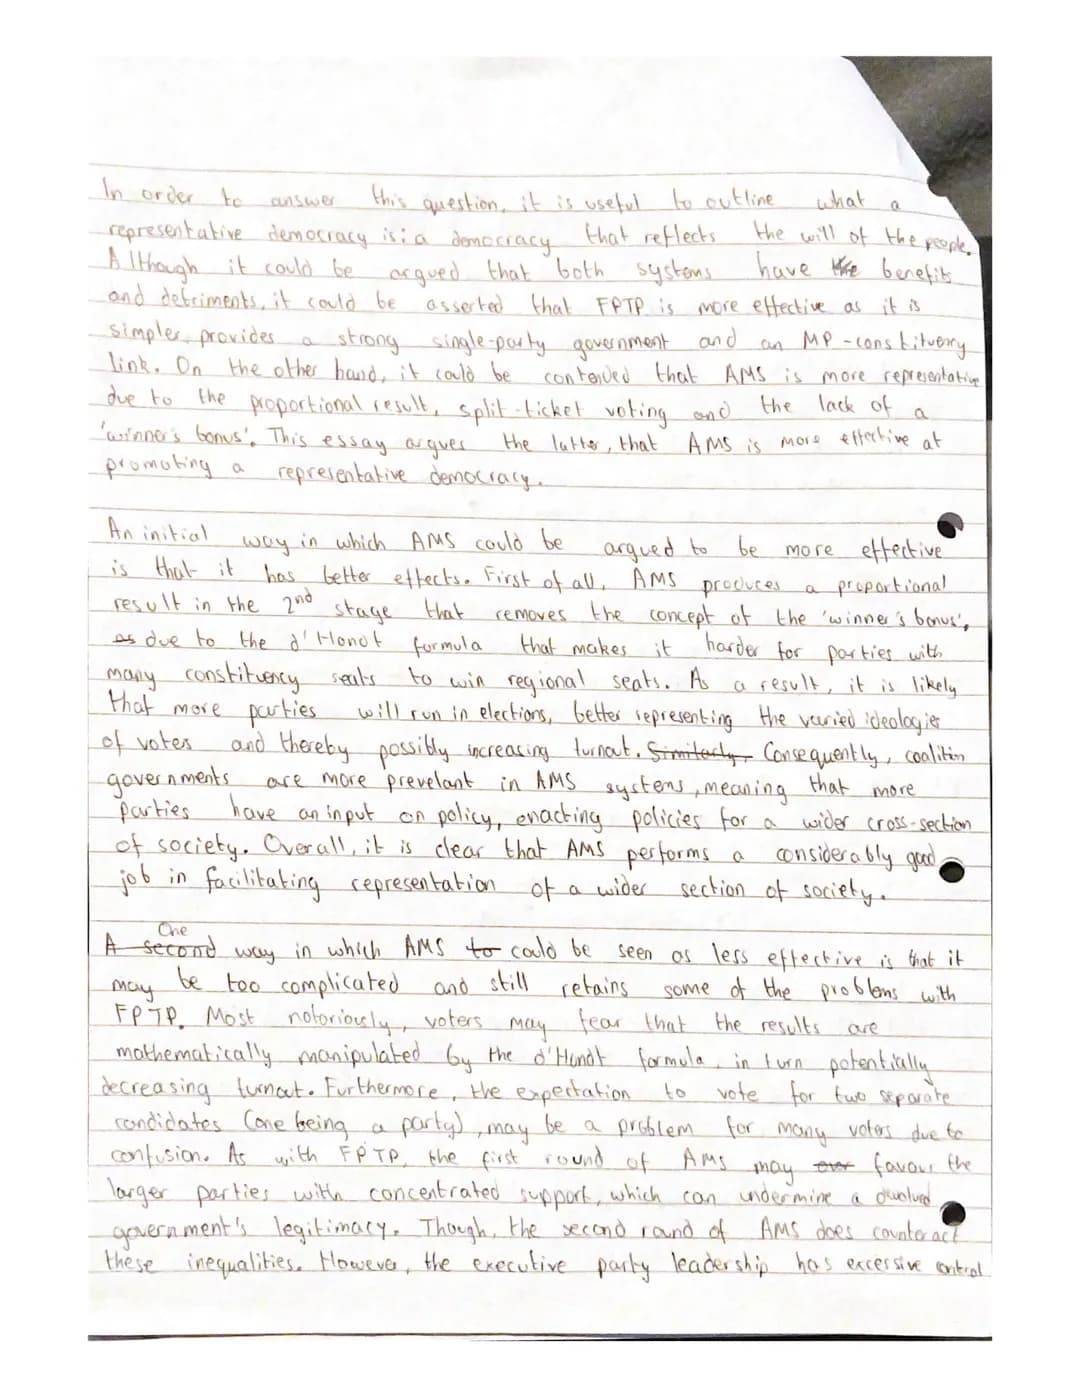 In order to answer this question, it is useful to outline what a
representative democracy is: a democracy that reflects the will of the people.
Although it could be argued that both systems have the benefits
and detriments, it could be asserted that FPTP is more effective as it is
simpler, provides a strong single-party government and an MP-constituency
link. On the other hand, it could be contended that AMS is more representative
due to the proportional result, split-ticket voting and the lack of a
'winner's bonus'. This essay argues the latter, that AMS is more effective at
promoting a representative democracy.
An initial way in which AMS could be argued to be more effective
is that it has better effects. First of all, AMS produces a proportional
result in the 2nd stage that removes the concept of the 'winner's bonus',
as due to the d'Hondt formula that makes it harder for parties with
many constituency seats to win regional seats. As a result, it is likely
that more parties will run in elections, better representing the varied ideologies
of votes and thereby possibly increasing turnout. Similarly, Consequently, coalition
governments are more prevelant in AMS systems, meaning that more
parties have an input on policy, enacting policies for a wider cross-section
of society. Overall, it is clear that AMS performs a considerably good
job in facilitating representation of a wider section of society.
One
A second way in which AMS to could be seen as less effective is that it
may be too complicated and still retains some of the problems with
FPTP. Most notoriously, voters may fear that the results are
mathematically manipulated by the d'Hondt formula, in turn potentially
decreasing turnout. Furthermore, the expectation to vote for two separate
candidates (one being a party), may be a problem for many voters due to
confusion. As with FPTP, the first round of AMS may over favour the
larger parties with concentrated support, which can undermine a devolved
government's legitimacy. Though, the second round of AMS does counteract
these inequalities. However, the executive party leadership has excessive control